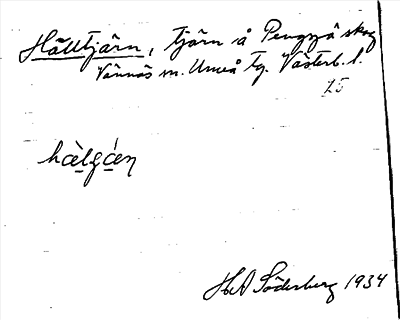 Hälltjärn, tjärn å Pengsjö skog
Vännäs sn. Umeå tg. Västerb. l.
hὲlgǽɳ
H A Söderberg 1934